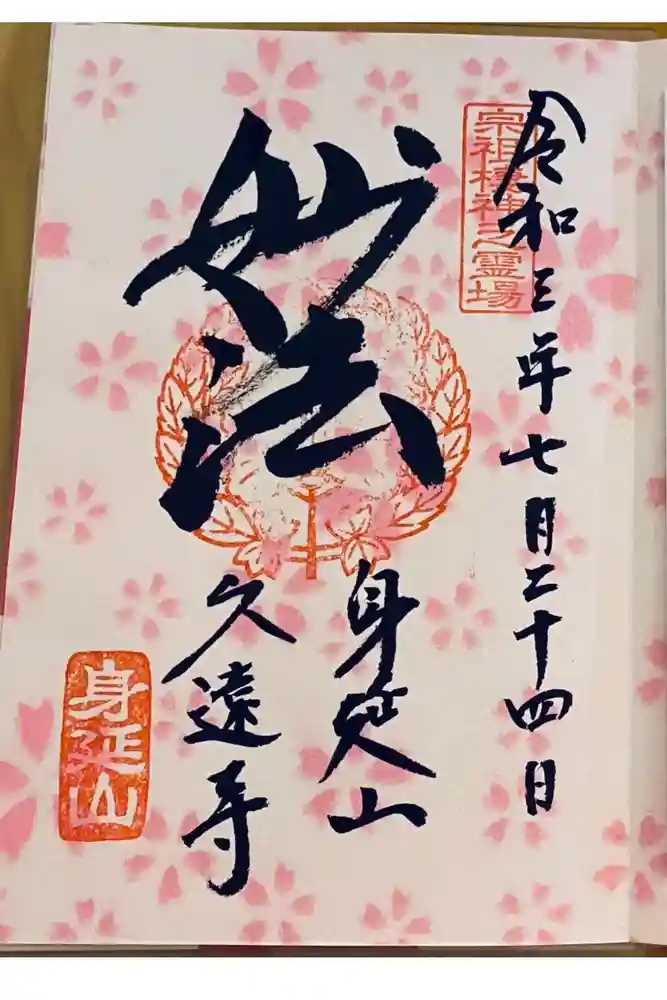 令和三年七月二十四日
宗祖棲神之霊場
妙法
身延山
久遠寺
身延山